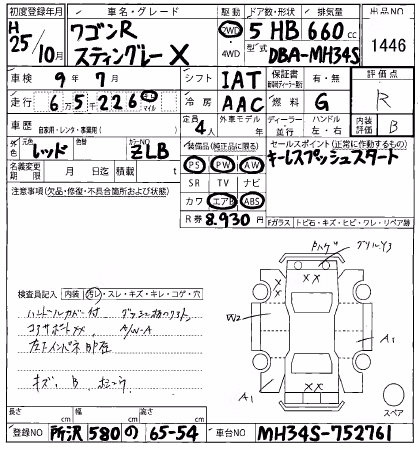 初度登録年月 車名・グレード 駆動 ドア数・形状 排気量 出品NO
H 25/10月 ワゴンR スティングレー X 2WD ・ 4WD 5 HB 660 cc 1446
型式 DBA-MH34S
車検 9年 7月 シフト IAT 保証書 有・無 評価点
走行 6万5千226 キロ マイル 冷房 AAC 燃料 G R
車歴 自家用・レンタ・事業用( ) 定員 4人 外車モデル 年 ディーラー 並行 ハンドル 左・右 内装 B
外色 元色 レッド 色替 カラーNO ZLB 装備品(純正品に限る) セールスポイント(正常に作動するもの)
名義変更期限 月 日迄 積載 t PS PW AW キーレスプッシュスタート
注意事項(欠品・修復・不具合箇所および状態) SR TV ナビ
カワ エアB ABS
R券 8.930円 Fガラス トビ石・キズ・ヒビ・ワレ・リペア跡
検査員記入 内装 汚レ・スレ・キズ・キレ・コゲ・穴
ハンドルカバー付
コアサポートXX A/W-A
キズ、B
XX
XX
W2
A1
A1
スペア
長さ cm 幅 cm 高さ cm
登録NO 所沢 580 の 65-54 車台NO MH34S-752761